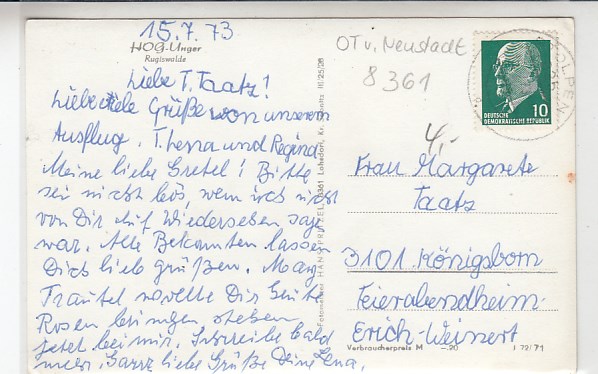 15.7.73
HOG-Unger
Rugiswalde
Liebe T. Taatz!
Liebe viele Grüße von unserem
Ausflug. T. Lena und Regina
Meine liebe Gretel! Bitte
sei nicht bös, wenn ich nicht
von Dir auf Wiedersehen sagen
war. Alle Bekannten lassen
Dich lieb grüßen. Marg.
Trautel wollte Dir heute
Rosen bringen stehen
jetzt bei mir. Schreibe bald
mir. Ganz liebe Grüße Deine Lena.
Fotograf HANS PRITZEL, 8361 Lohsdorf, Kr. Sebnitz III/25/28
OT v. Neustadt
8361
4,-
STOLPEN
10
DEUTSCHE
DEMOKRATISCHE REPUBLIK
Frau Margarete
Taatz
3101 Königsborn
Feierabendheim
Erich-Weinert
Verbraucherpreis M -.20 I 72/71